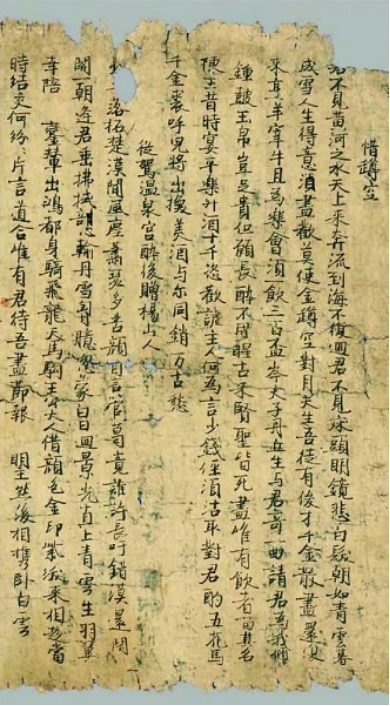 惜罇空
君不見黃河之水天上來奔流到海不復迴君不見床頭明鏡悲白髮朝如青雲暮
成雪人生得意須盡歡莫使金罇空對月天生吾徒有俊才千金散盡還復
來烹羊宰牛且為樂會須一飲三百盃岑夫子丹丘生與君哥一曲請君為我傾
鍾鼓玉帛豈足貴但願長醉不用醒古來賢聖皆死盡唯有飲者留其名
陳王昔時宴平樂斗酒十千恣歡謔主人何為言少錢徑須沽取對君酌五花馬
千金裘呼兒將出換美酒与尒同銷万古愁
從駕溫泉宮醉後贈楊山人
落拓楚漢間風塵蕭瑟多苦顏自言管葛竟誰許長吁錯漠還閉
關一朝逢君垂拂拭剖心輸丹雪胸臆忽蒙白日迴景光直上青雲生羽翼
幸陪鸞輦出鴻都身騎飛龍天馬駒王公大人借顏色金印紫綬來相趨當
時結交何紛々片言道合唯有君待吾盡節報明主然後相攜卧白雲